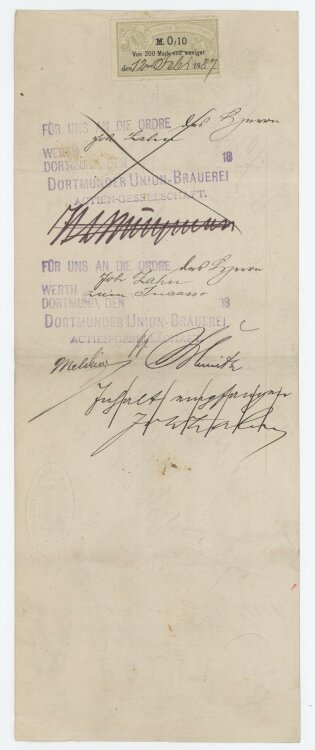 M. 0,10
Von 200 Mark und weniger
den 12ten Octbr 1887
FÜR UNS AN DIE ORDRE des Herrn
Joh Zahn
WERTH
DORTMUND, DEN 18
DORTMUNDER UNION-BRAUEREI
ACTIEN-GESELLSCHAFT.
FÜR UNS AN DIE ORDRE des Herrn
Joh Zahn
WERTH zum Incasso
DORTMUND, DEN 18
DORTMUNDER UNION-BRAUEREI
ACTIEN-GESELLSCHAFT
Inhalt empfangen
Joh Zahn